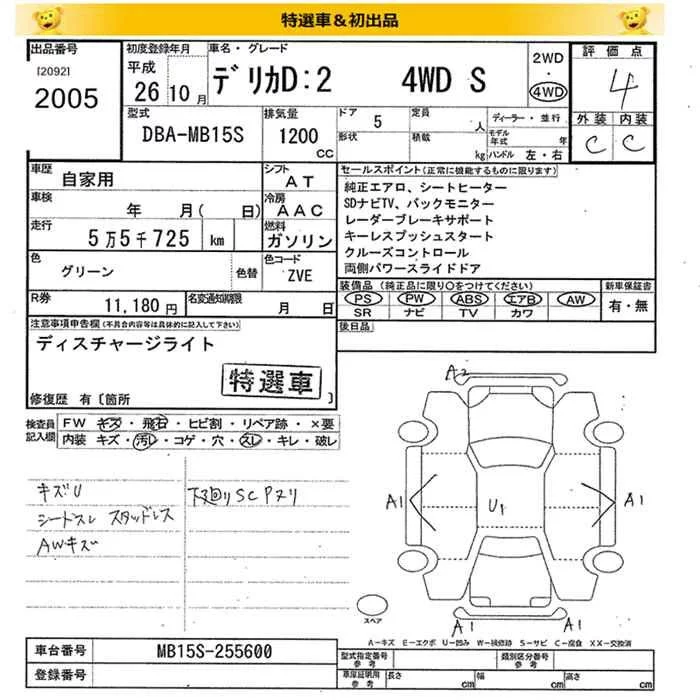 特選車＆初出品
出品番号
[2092]
2005
初度登録年月
平成
26 10 月
車名・グレード
デリカD:2 4WD S
2WD
・
4WD
評価点
4
外装 内装
C C
型式
DBA-MB15S
排気量
1200
cc
ドア
5
形状
定員
人
積載
kg
ディーラー・並行
モデル年式 年
ハンドル 左・右
車歴
自家用
シフト
AT
車検
年 月( 日)
冷房
AAC
走行
5万5千725 km
燃料
ガソリン
色
グリーン
色替
色コード
ZVE
R券
11,180 円
名変通知期限
月 日
セールスポイント(正常に機能するものに限ります)
純正エアロ、シートヒーター
SDナビTV、バックモニター
レーダーブレーキサポート
キーレスプッシュスタート
クルーズコントロール
両側パワースライドドア
装備品 (純正品に限り○をつけてください)
PS PW ABS エアB AW
SR ナビ TV カワ
新車保証書
有・無
後日品
注意事項申告欄(不具合内容等は具体的に記入して下さい)
ディスチャージライト
特選車
修復歴 有〔箇所 〕
検査員
記入欄
FW キズ・飛石・ヒビ割・リペア跡・×要
内装 キズ・汚レ・コゲ・穴・スレ・キレ・破レ
キズU
シートスレ スタッドレス
AWキズ
下廻りSCPヌリ
A2
A1
U1
A1
A1
A1
スペア
A－キズ E－エクボ U－凹み W－補修跡 S－サビ C－腐食 XX－交換済
車台番号
MB15S-255600
登録番号
型式指定番号
参考
類別区分番号
参考
車庫証明用
参考
長さ cm
幅 cm
高さ cm